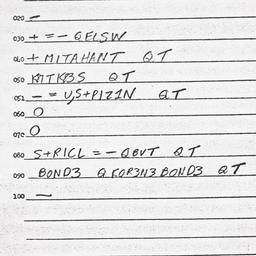 020 –
030 + = – QFLSW
040 + MITAHANT QT
050 KMTKB3S QT
051 – = U,S+PIZ1N QT
060 O
070 O
080 S+RICL = – QBVT QT
090 BOND3 Q KOR3N3 BOND3 QT
100 –